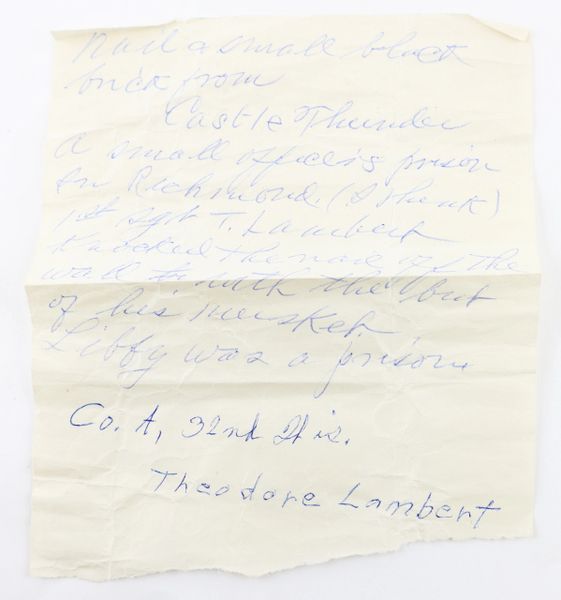 Nail a small black
brick from
Castle Thunder
a small officers prison
in Richmond. (I think)
1st Sgt T. Lambert
Knocked the nail off the
wall with the but
of his musket.
Libby was a prison.
Co. A, 32nd Wis.
Theodore Lambert